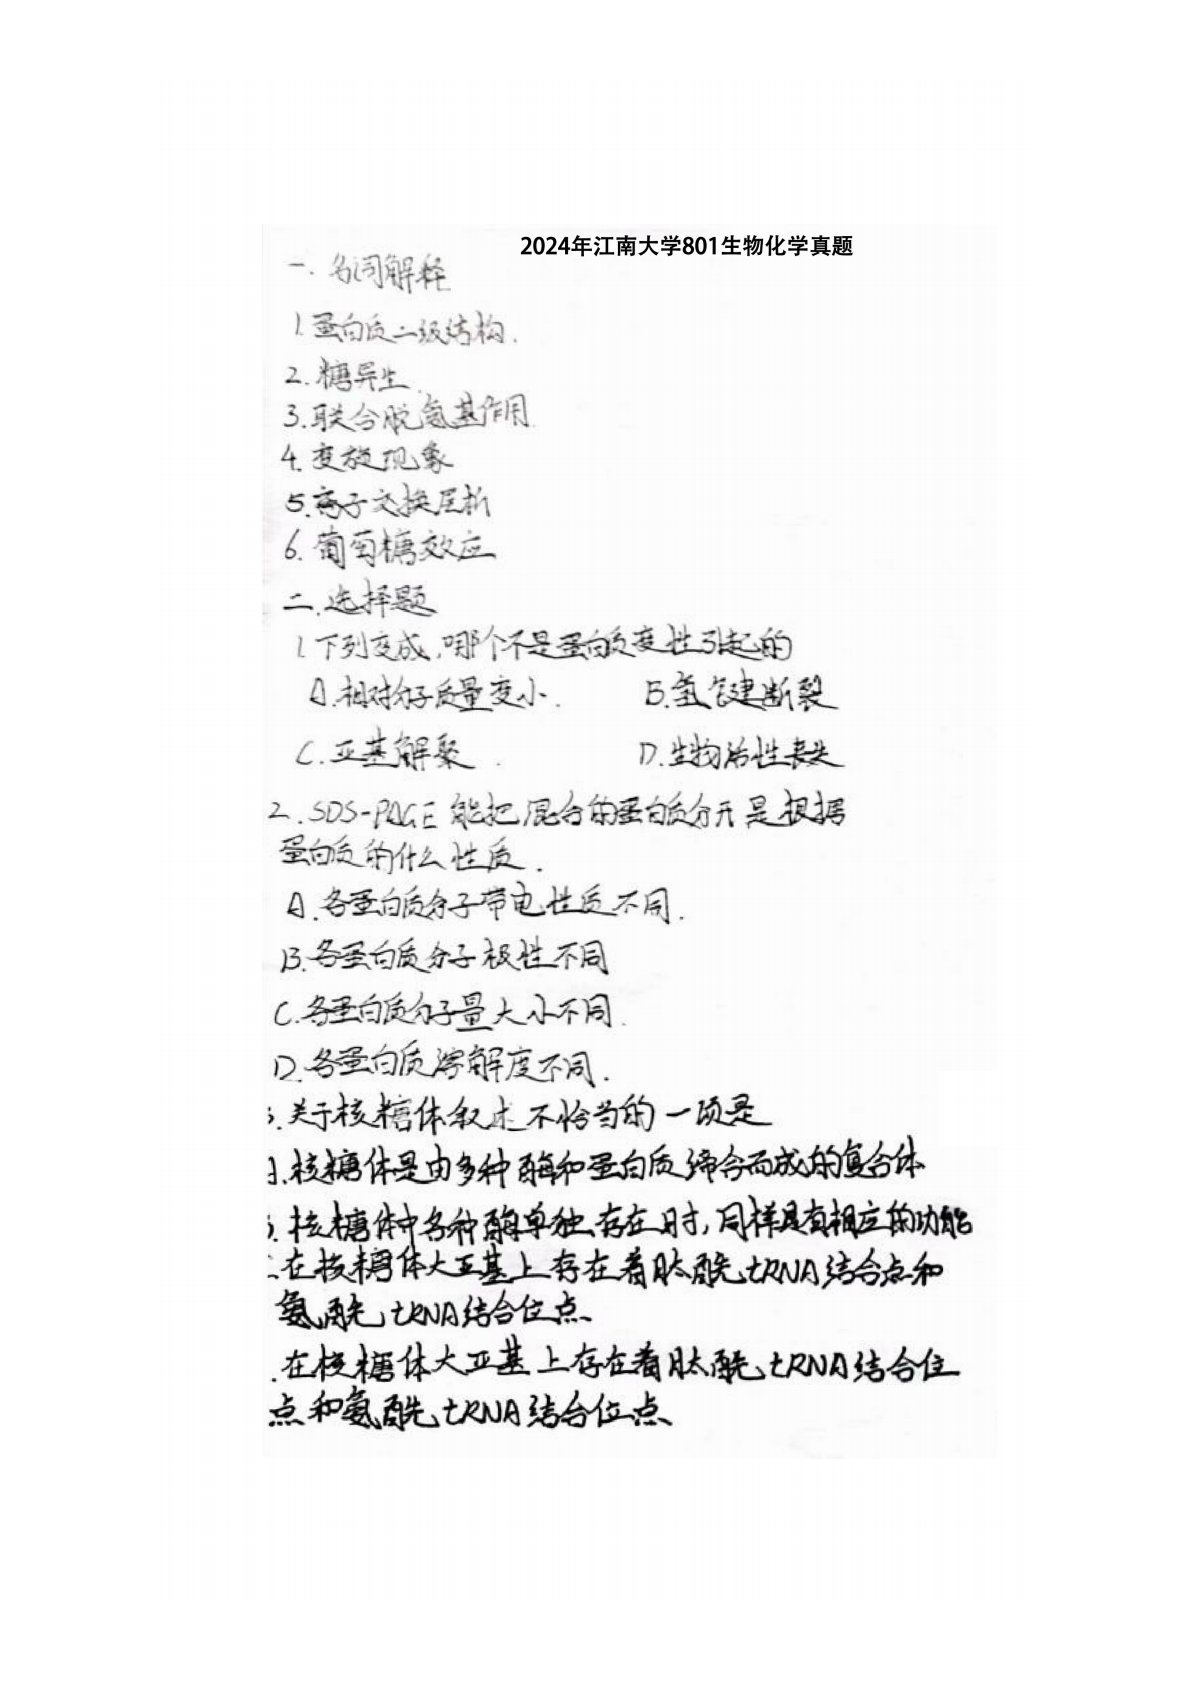 2024年江南大学801生物化学真题
一. 名词解释
1. 蛋白质二级结构.
2. 糖异生.
3. 联合脱氨基作用.
4. 变旋现象
5. 离子交换层析
6. 葡萄糖效应
二. 选择题
1. 下列变成,哪个不是蛋白质变性引起的
A. 相对分子质量变小. B. 氢键断裂
C. 亚基解聚. D. 生物活性丧失
2. SDS-PAGE 能把混合的蛋白质分开是根据
蛋白质的什么性质.
A. 各蛋白质分子带电性质不同.
B. 各蛋白质分子极性不同
C. 各蛋白质分子量大小不同.
D. 各蛋白质溶解度不同.
. 关于核糖体叙述不恰当的一项是
. 核糖体是由多种酶和蛋白质缔合而成的复合体
. 核糖体中各种酶单独存在时,同样具有相应的功能
. 在核糖体大亚基上存在着肽酰tRNA结合点和
氨酰tRNA结合位点
. 在核糖体大亚基上存在着肽酰tRNA结合位
点和氨酰tRNA结合位点